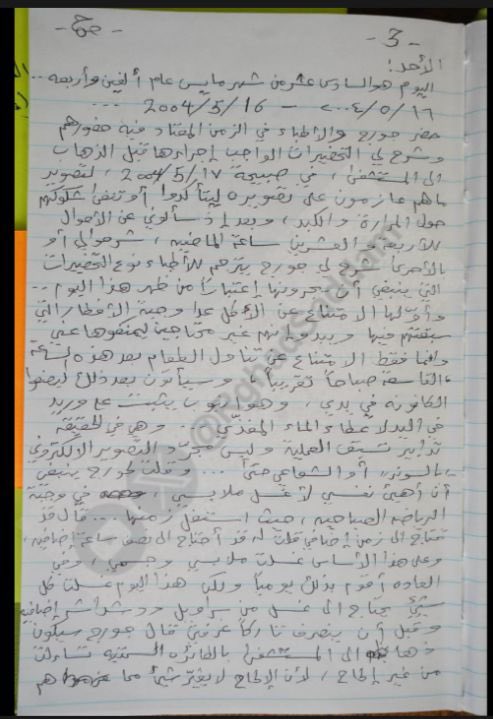 - 3 -
- ج -
الأحد:
اليوم هو السادس عشر من شهر مايس عام ألفين وأربعه ..
٢٠٠٤/٥/١٦ - 2004/5/16 ...
حضر جورج والأطباء في الزمن المعتاد فيه حضورهم
وشرح لي التحضيرات الواجب إجراءها قبل الذهاب
الى المستشفى، في صبيحة 2004/5/17، لتصوير
ما هم عازمون على تصويره ليتأكدوا أو تنفى شكوكهم
حول المرارة والكبد، وبعد إذ سألوني عن الأحوال
للأربعة والعشرين ساعة الماضيه، شرحوا لي أو
بالأحرى شرح لي جورج يترجم للأطباء نوع التحضيرات
التي ينبغي أن يجرونها إعتباراً من ظهر هذا اليوم ..
وأولها الامتناع عن الأكل عدا وجبة الأفطار التي
سبقتهم فيها ويبدو أنهم غير محتاجين ليمنعوها عني
وإنما فقط الامتناع عن تناول الطعام بعد هذه الساعة
التاسعة صباحاً تقريباً، وسيأتون بعد ذلك ليضعوا
الكانونه في يدي، وهو انبوب يثبت على وريد
في اليد لإعطاء الماء المغذّي .. وهي في الحقيقة
تدابير تسبق العملية وليس مجرّد التصوير الالكتروني
بالسونر، أو الشعاعي حتى ... وقلت لجورج ينبغي
أن أهيئ نفسي لأغسل ملابسي، في وجبة
الرياضه الصباحيه، حيث استغل زمنها .. قال قد
تحتاج الى زمن إضافي قلت له قد أحتاج الى نصف ساعة إضافيه،
وعلى هذا الأساس غسلت ملابسي وجسمي وفي
العاده أقوم بذلك يومياً ولكن هذا اليوم غسلت كل
شيئ يحتاج الى غسل من سراويل ودشداشه إضافيه
وقبل أن ينصرف تاركاً غرفتي قال جورج سيكون
ذهابك الى المستشفى بالطائره السمتيه تساءلت
من غير إلحاح، لأن الإلحاح لا يغيّر شيئاً مما هم
@RghadSaddam